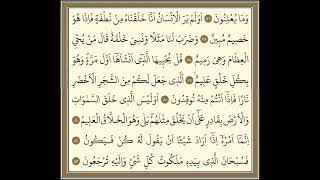 وَمَا يُعْلِنُونَ ﴿٧٦﴾ اَوَلَمْ يَرَ الْاِنْسَانُ اَنَّا خَلَقْنَاهُ مِنْ نُطْفَةٍ فَاِذَا هُوَ
خَصِيمٌ مُبِينٌ ﴿٧٧﴾ وَضَرَبَ لَنَا مَثَلًا وَنَسِيَ خَلْقَهُ قَالَ مَنْ يُحْيِي
الْعِظَامَ وَهِيَ رَمِيمٌ ﴿٧٨﴾ قُلْ يُحْيِيهَا الَّذِٓي اَنْشَاَهَٓا اَوَّلَ مَرَّةٍ وَهُوَ
بِكُلِّ خَلْقٍ عَلِيمٌ ﴿٧٩﴾ اَلَّذِي جَعَلَ لَكُمْ مِنَ الشَّجَرِ الْاَخْضَرِ
نَارًا فَاِذَٓا اَنْتُمْ مِنْهُ تُوقِدُونَ ﴿٨٠﴾ اَوَلَيْسَ الَّذِي خَلَقَ السَّمٰوَاتِ
وَالْاَرْضَ بِقَادِرٍ عَلٰٓى اَنْ يَخْلُقَ مِثْلَهُمْ بَلٰى وَهُوَ الْخَلَّاقُ الْعَلِيمُ ﴿٨١﴾
اِنَّمَٓا اَمْرُهُٓ اِذَٓا اَرَادَ شَيْـًٔا اَنْ يَقُولَ لَهُ كُنْ فَيَكُونُ ﴿٨٢﴾
فَسُبْحَانَ الَّذِي بِيَدِهِ مَلَكُوتُ كُلِّ شَيْءٍ وَاِلَيْهِ تُرْجَعُونَ ﴿٨٣﴾